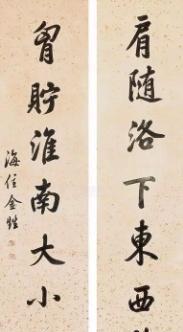 肩随洛下東西
胷貯淮南大小
海住金甡